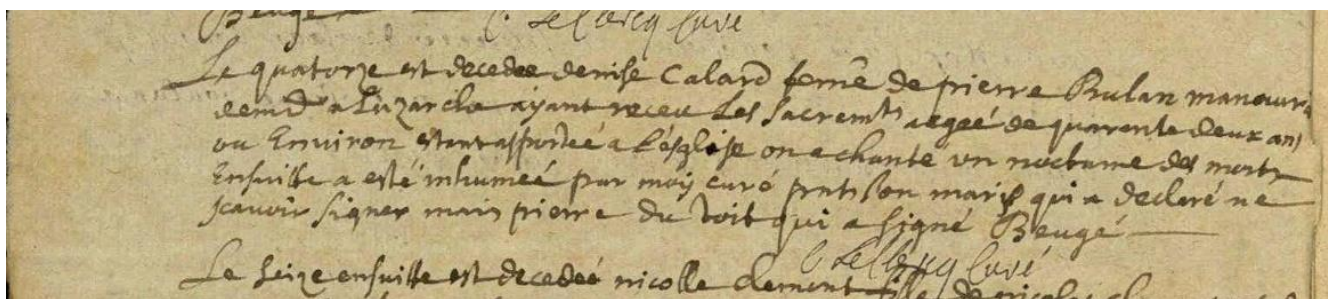 Beugé
C. Leclercq Curé
Le quatorze est decedee denise Calard feme de pierre Bulan manouvri
demt a Luzarche ayant receu Les Sacremts ageé de quarente deux ans
ou Environ estant apporteé a L'esglise on a chante un nocturne des morts
Ensuitte a esté inhumeé par moy curé pnts son marij qui a declaré ne
scavoir signer mais pierre du toit qui a signé Beugé
C. Leclercq Curé
Le seize ensuitte est decedeé nicolle clement fille de nicolas